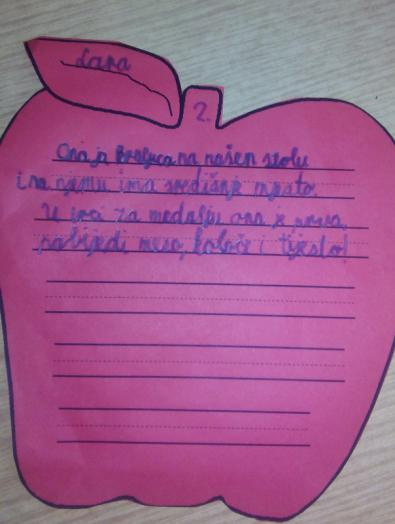 Lara
2.
Ona je kraljica na našem stolu
i na njemu ima središnje mjesto.
U trci za medalju ona je prva,
pobijedi meso, kolače i tijesto!